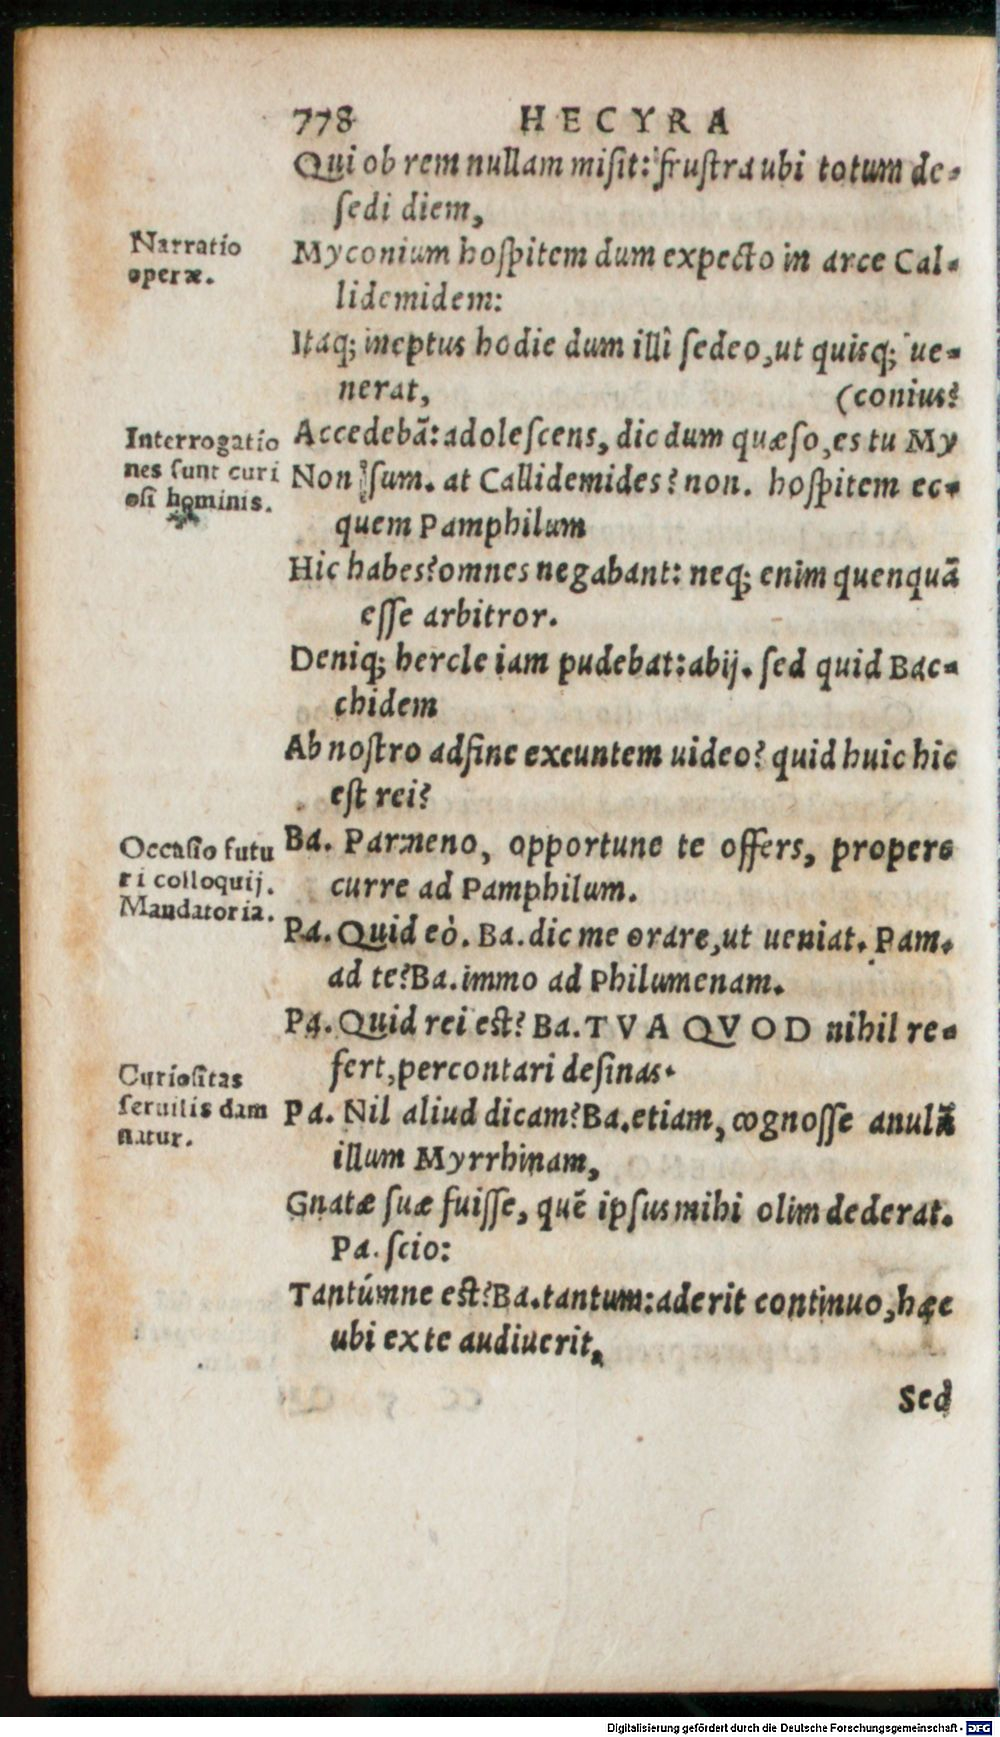 778 HECYRA
Qui ob rem nullam miſit: fruſtra ubi totum de-
ſedi diem,
Narratio
operæ.
Myconium hoſpitem dum expecto in arce Cal-
lidemidem:
Itaq; ineptus hodie dum illî ſedeo, ut quisq; ue-
nerat, (conius?
Interrogatio
nes ſunt curi
oſi hominis.
Accedebā: adoleſcens, dic dum quæſo, es tu My
Non ſum. at Callidemides? non. hoſpitem ec-
quem Pamphilum
Hic habes? omnes negabant: neq; enim quenquā
eſſe arbitror.
Deniq; hercle iam pudebat: abij. ſed quid Bac-
chidem
Ab noſtro adfine exeuntem uideo? quid huic hic
eſt rei?
Occaſio futu
ri colloquij.
Mandatoria.
Ba. Parmeno, opportune te offers, propere
curre ad Pamphilum.
Pa. Quid eò. Ba. dic me orare, ut ueniat. Pam.
ad te? Ba. immo ad Philumenam.
Pa. Quid rei eſt? Ba. TVA QVOD nihil re-
fert, percontari deſinas.
Curioſitas
ſeruilis dam
natur.
Pa. Nil aliud dicam? Ba. etiam, cognoſſe anulū
illum Myrrhinam,
Gnatæ ſuæ fuiſſe, quē ipſus mihi olim dederat.
Pa. ſcio:
Tantúmne eſt? Ba. tantum: aderit continuo, hæc
ubi ex te audiuerit,
Sed
Digitalisierung gefördert durch die Deutsche Forschungsgemeinschaft - DFG